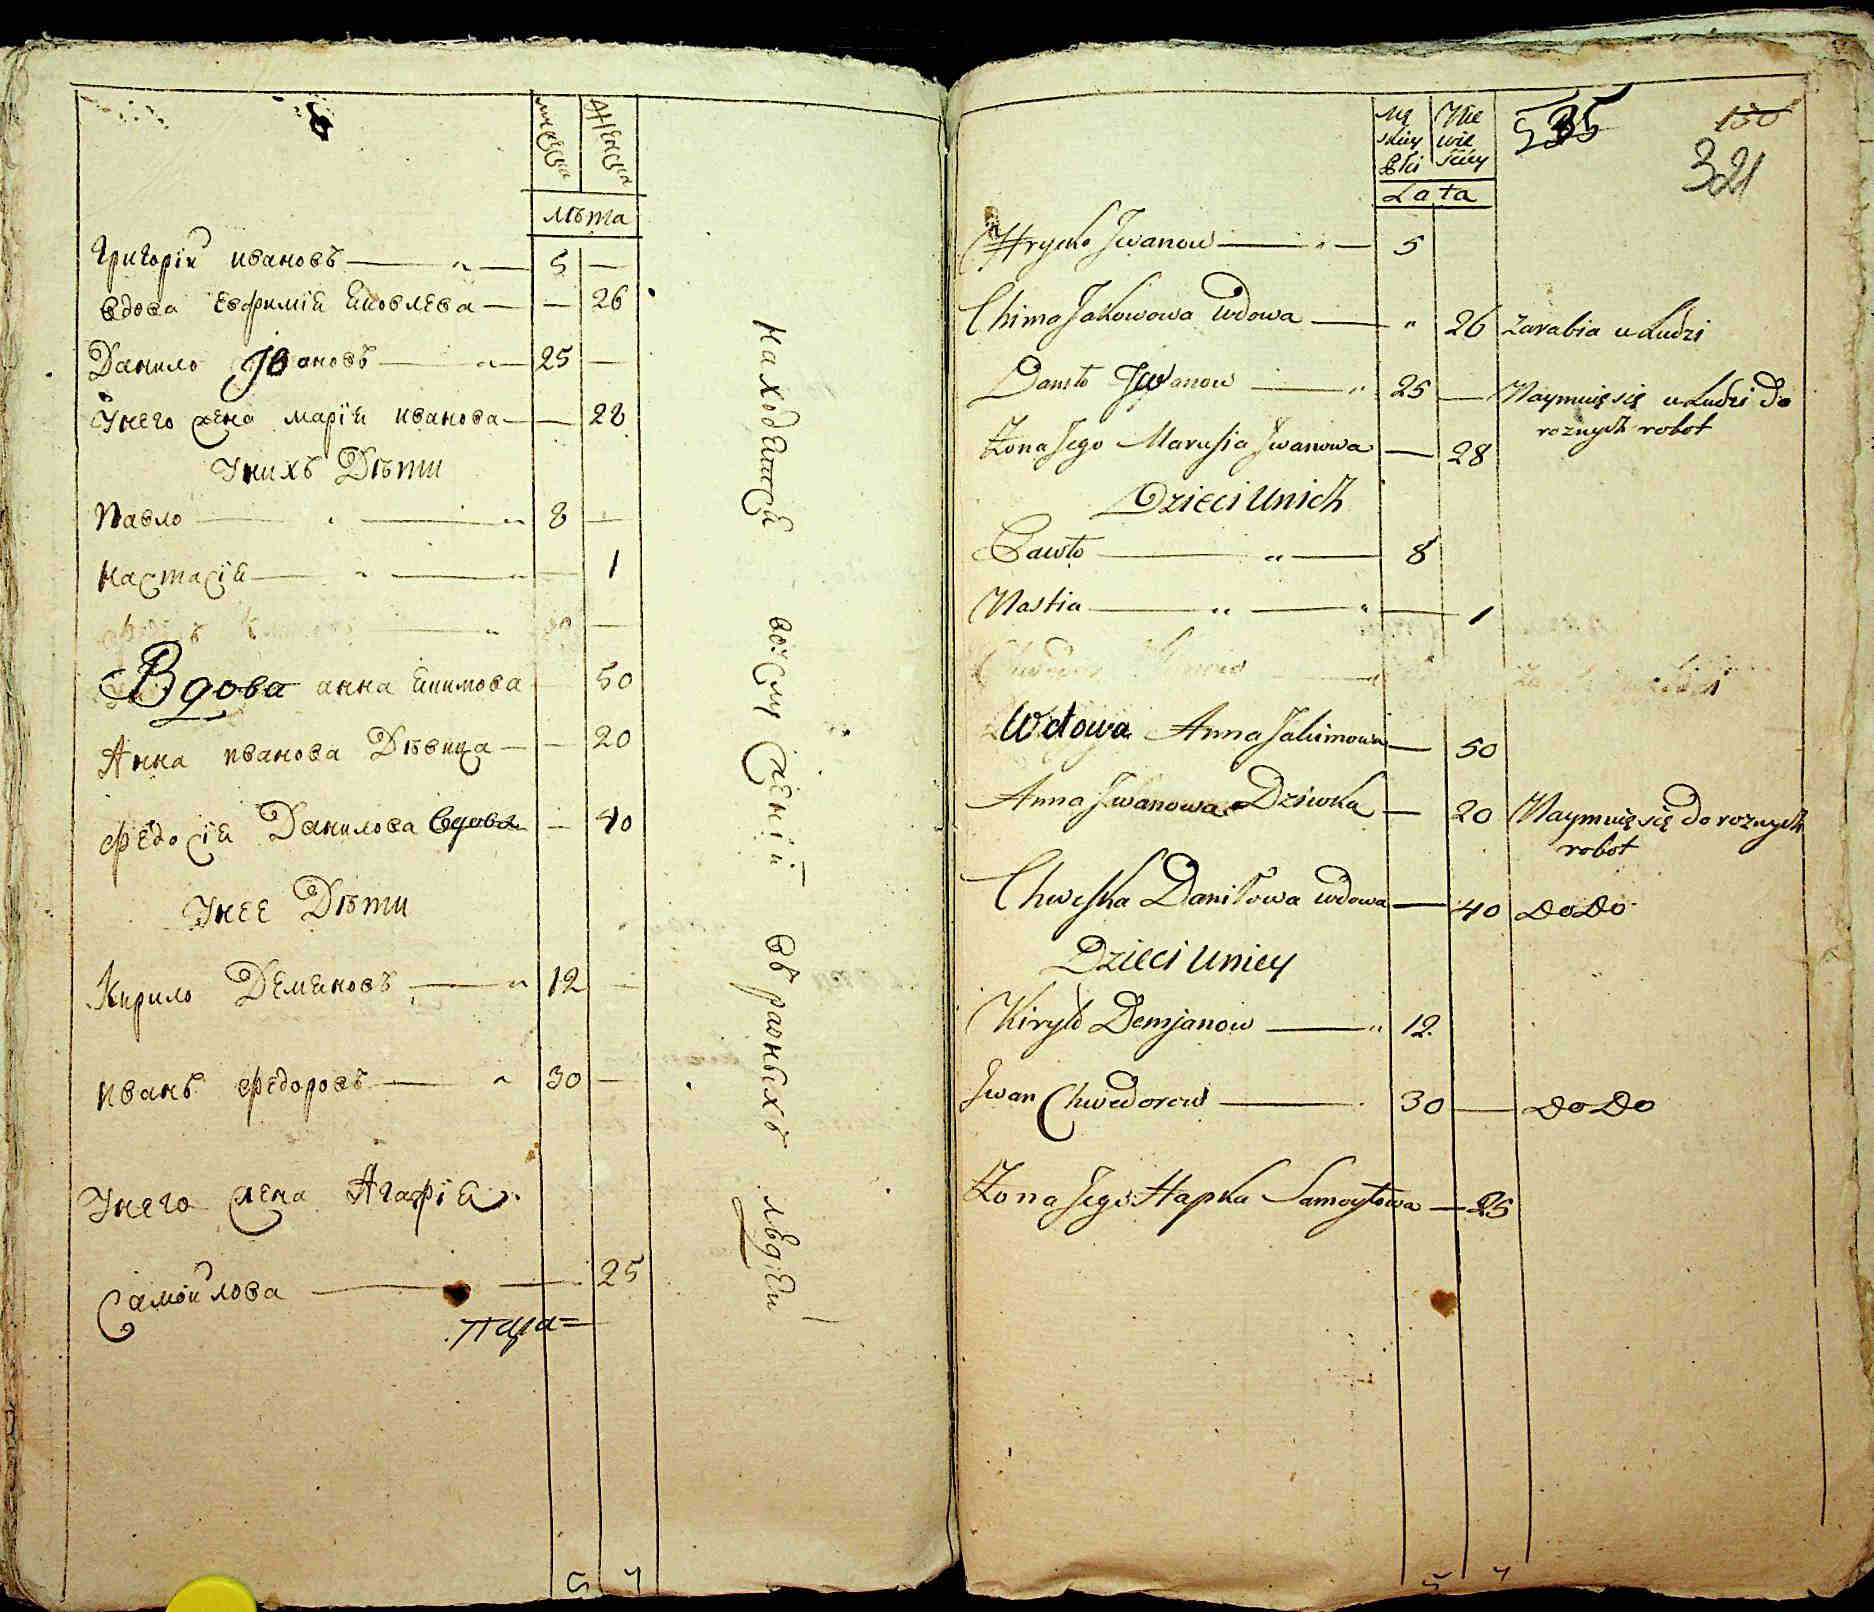 мужеска женска
лѣта
Григорій ивановъ — 5 —
вдова евфимія яковлева — — 26
Данило Ивановъ — 25 —
Унего жена марїя иванова — — 28
Унихъ Дѣти
Павло — 8 —
настасїя — — 1
Вдова анна якимова — 50
Анна иванова Дѣвица — — 20
Федосія Данилова вдова — 40
Унее Дѣти
Кирило Демяновъ — 12 —
иванъ федоровъ — 30 —
Унего жена Агафїя
Самойлова — 25
находятся во услуженїи въ разныхъ людей
5 7
Mę skiey płci Nie wie sciey
Lata
321
Hrycko Jwanow — 5
Chima Jakowowa wdowa — 26 zarabia u Ludzi
Daniło Jwanow — 25 — Naymuię się u Ludzi do
roznych robot
Zona Jego Marusia Jwanowa — 28
Dzieci Unich
Pawło — 8
Nastia — 1
Wdowa Anna Jakimowa — 50
Anna Jwanowa Dziwka — 20 Naymuię się do roznych
robot
Chweska Daniłowa wdowa — 40 do do
Dzieci Uniey
Kiryło Demjanow — 12
Jwan Chwedorow — 30 — do do
Zona Jego Hapka Samoyłowa — 25
5 7